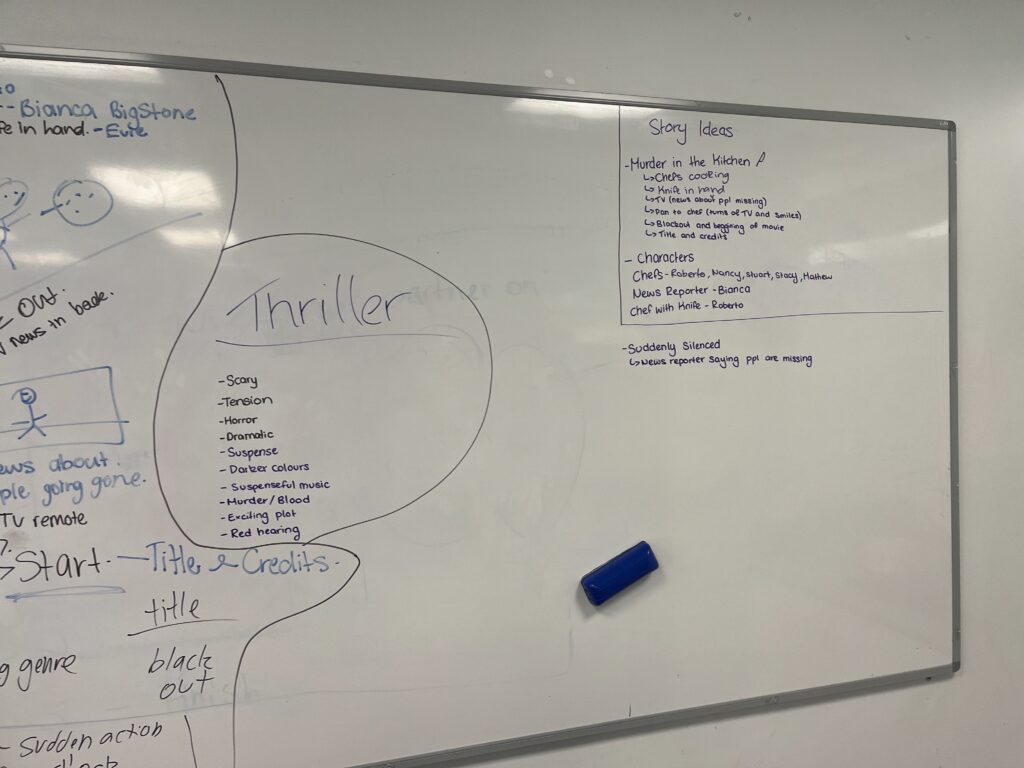 - Bianca BigStone
in hand. - Evite
OUT.
news in back.
about.
going gone.
TV remote
Start - Title & Credits.
title
black
out
genre
- Sudden action
Thriller
- Scary
- Tension
- Horror
- Dramatic
- Suspense
- Darker colours
- Suspenseful music
- Murder/Blood
- Exciting plot
- Red hearing
Story Ideas
- Murder in the Kitchen
↳ Chefs cooking
↳ Knife in hand
↳ TV (news about ppl missing)
↳ Pan to chef (turns of TV and smiles)
↳ Blackout and beggining of movie
↳ Title and credits
- Characters
Chefs - Roberto, Nancy, Stuart, Stacy, Mathew
News Reporter - Bianca
Chef with Knife - Roberto
- Suddenly Silenced
↳ News reporter saying ppl are missing